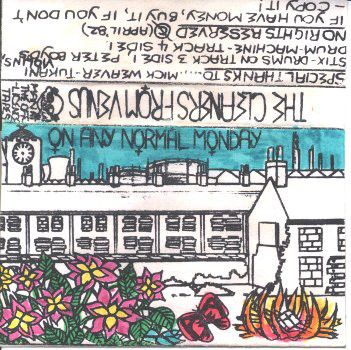 THE CLEANERS FROM VENUS
SPECIAL THANKS TO.... MICK WERVER-TUKEN!
STIX-DRUMS ON TRACK 3 SIDE 1. PETER
DRUM-MACHINE-TRACK 4 SIDE 1.
NO RIGHTS RESERVED (APRIL '82)
IF YOU HAVE MONEY, BUY IT, IF YOU DON'T
- COPY IT!
ON ANY NORMAL MONDAY